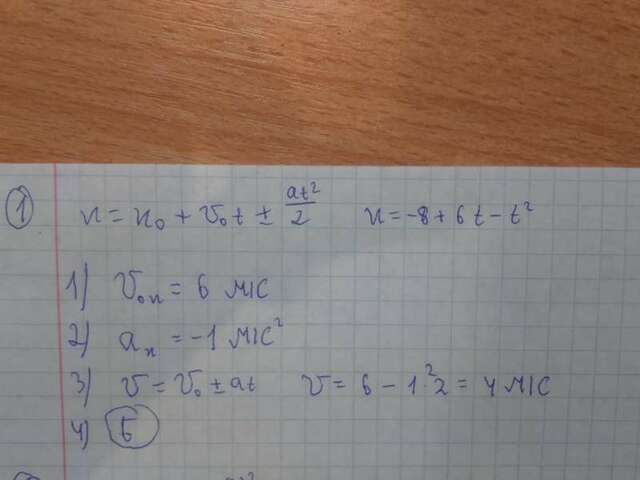 ①
x = x₀ + v₀t ± at²/2 x = -8 + 6t - t²
1) v₀ₓ = 6 м/с
2) aₓ = -1 м/с²
3) v = v₀ ± at v = 6 - 1·2 = 4 м/с
4) t